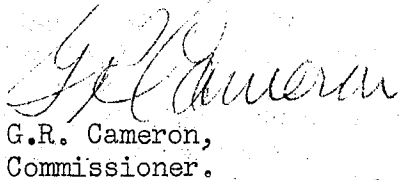 G R Cameron
G.R. Cameron,
Commissioner.